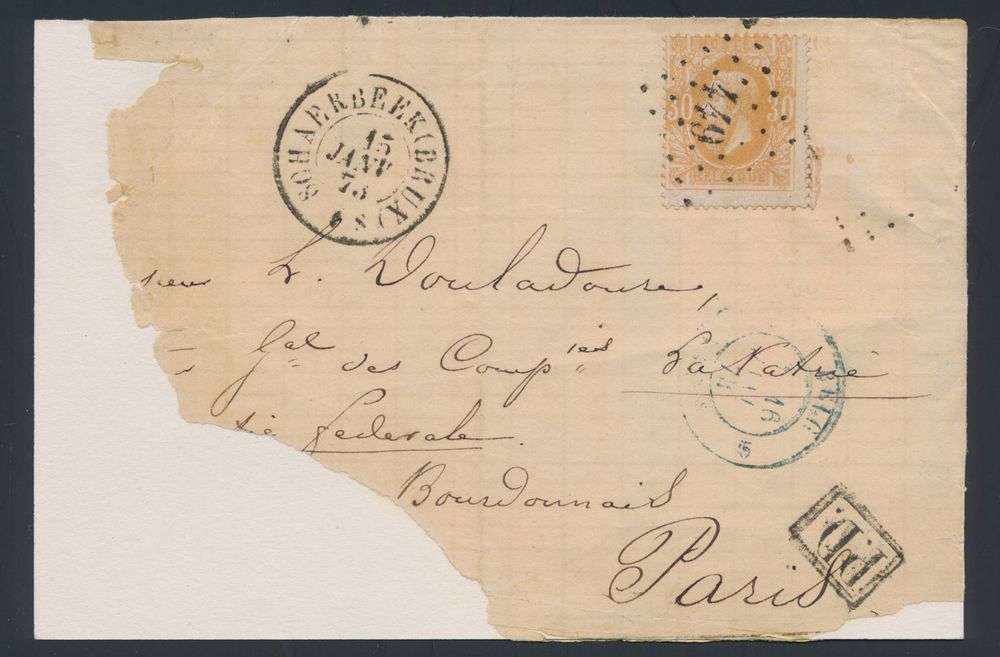 SCHAERBEEK (BRUXES)
15
JANV
73
30 30
BELGIQUE
449
sieur L. Douladoure,
Gal des Compies La Patrie
fédérale.
Bourdonnais
Paris
BELG
16
5
P.D.